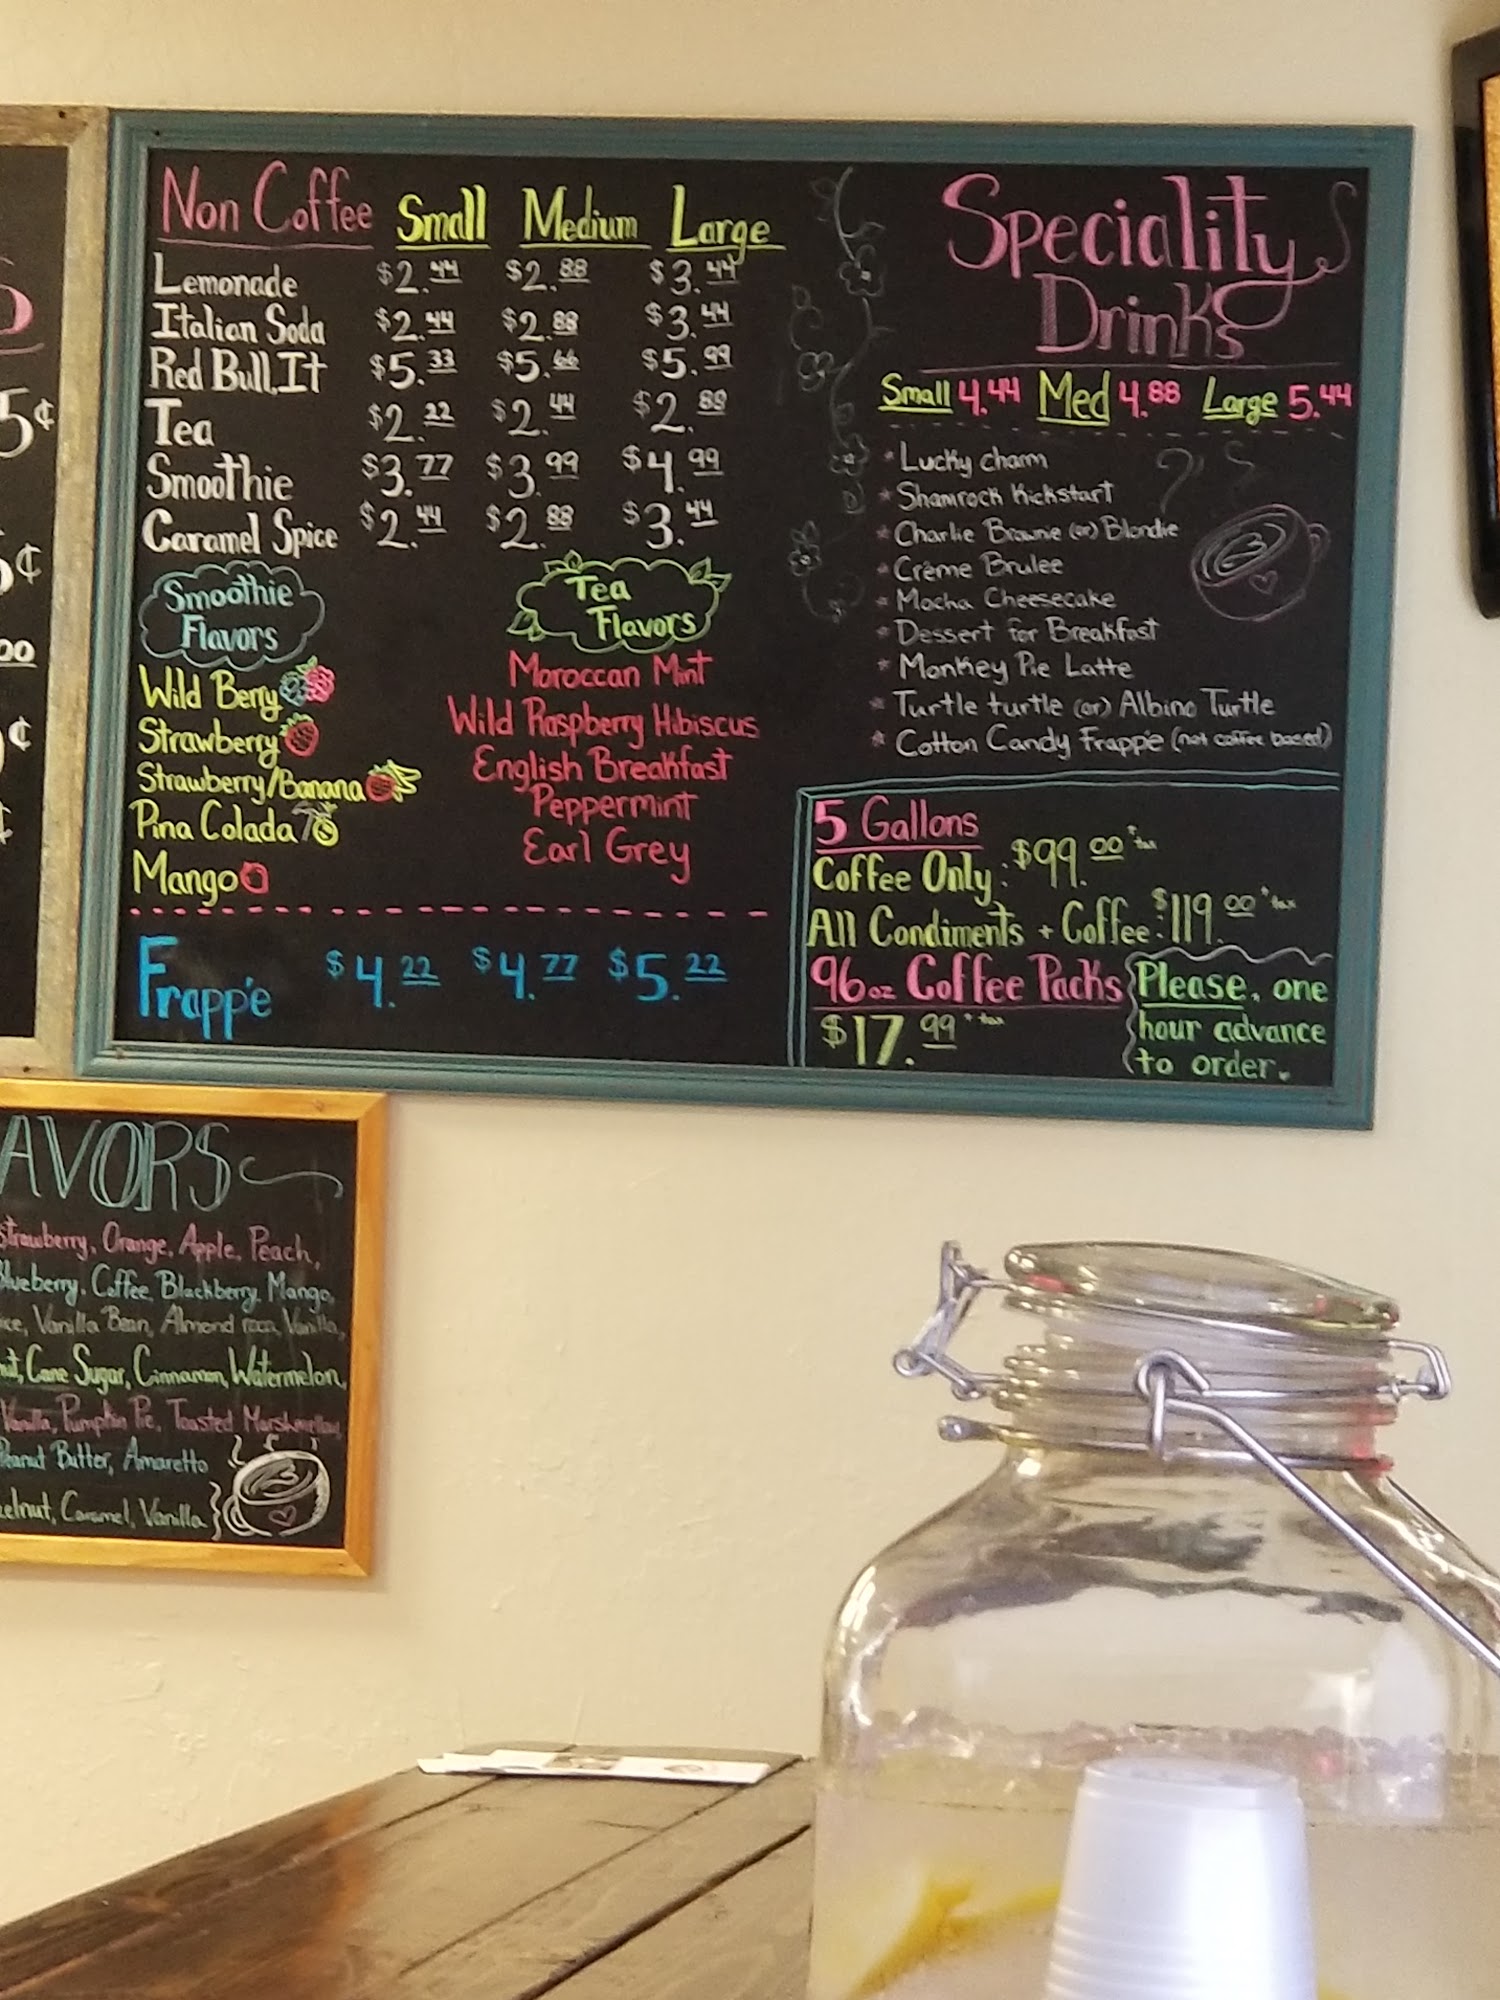 Non Coffee Small Medium Large
Lemonade $2.44 $2.88 $3.44
Italian Soda $2.44 $2.88 $3.44
Red Bull It $5.33 $5.66 $5.99
Tea $2.22 $2.44 $2.88
Smoothie $3.77 $3.99 $4.99
Caramel Spice $2.44 $2.88 $3.44
Smoothie
Flavors
Wild Berry
Strawberry
Strawberry/Banana
Pina Colada
Mango
Tea
Flavors
Moroccan Mint
Wild Raspberry Hibiscus
English Breakfast
Peppermint
Earl Grey
Frappé $4.22 $4.77 $5.22
Speciality
Drinks
Small 4.44 Med 4.88 Large 5.44
* Lucky charm
* Shamrock Kickstart
* Charlie Brownie (or) Blondie
* Crème Brulee
* Mocha Cheesecake
* Dessert for Breakfast
* Monkey Pie Latte
* Turtle turtle (or) Albino Turtle
* Cotton Candy Frappé (not coffee based)
5 Gallons
Coffee Only: $99.00 *tax
All Condiments + Coffee: $119.00 *tax
96oz Coffee Packs
$17.99 *tax
Please, one
hour advance
to order.
5¢
¢
00
¢
¢
AVORS
Strawberry, Orange, Apple, Peach,
Blueberry, Coffee, Blackberry, Mango,
ice, Vanilla Bean, Almond roca, Vanilla,
nut, Cane Sugar, Cinnamon, Watermelon,
Vanilla, Pumpkin Pie, Toasted Marshmellow
Peanut Butter, Amaretto
elnut, Caramel, Vanilla